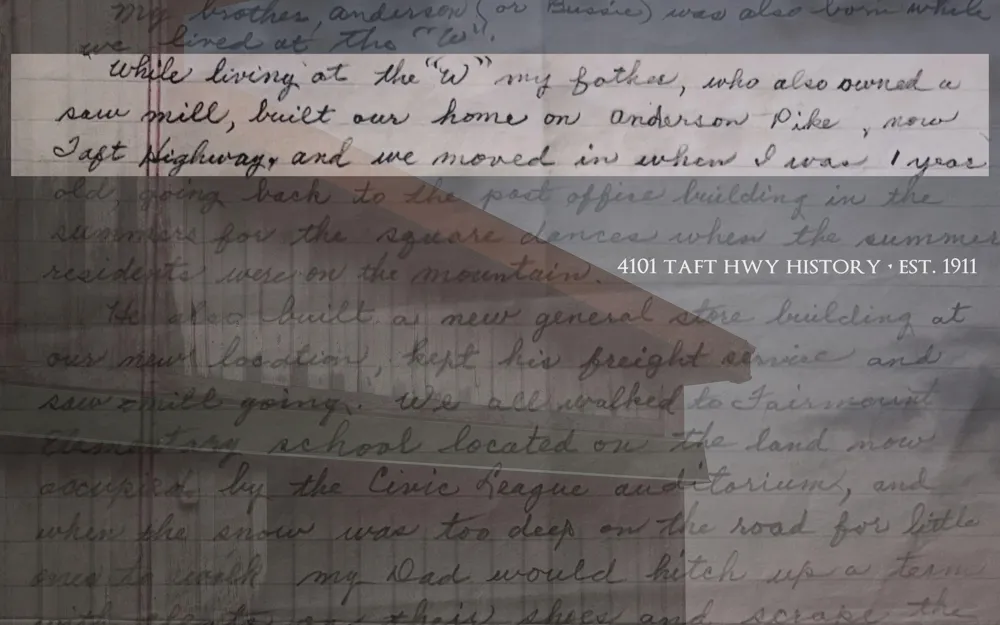 my brother, anderson (or Bussie) was also born while
we lived at the "W".
While living at the "W" my father, who also owned a
saw mill, built our home on Anderson Pike, now
Taft Highway, and we moved in when I was 1 year
old, going back to the post office building in the
summers for the square dances when the summer
residents were on the mountain.
4101 TAFT HWY HISTORY • EST. 1911
He also built a new general store building at
our new location, kept his freight service and
saw mill going. We all walked to Fairmount
Elementary school located on the land now
occupied by the Civic League auditorium, and
when the snow was too deep on the road for little
ones to walk my Dad would hitch up a team
with on their shoes and scrape the